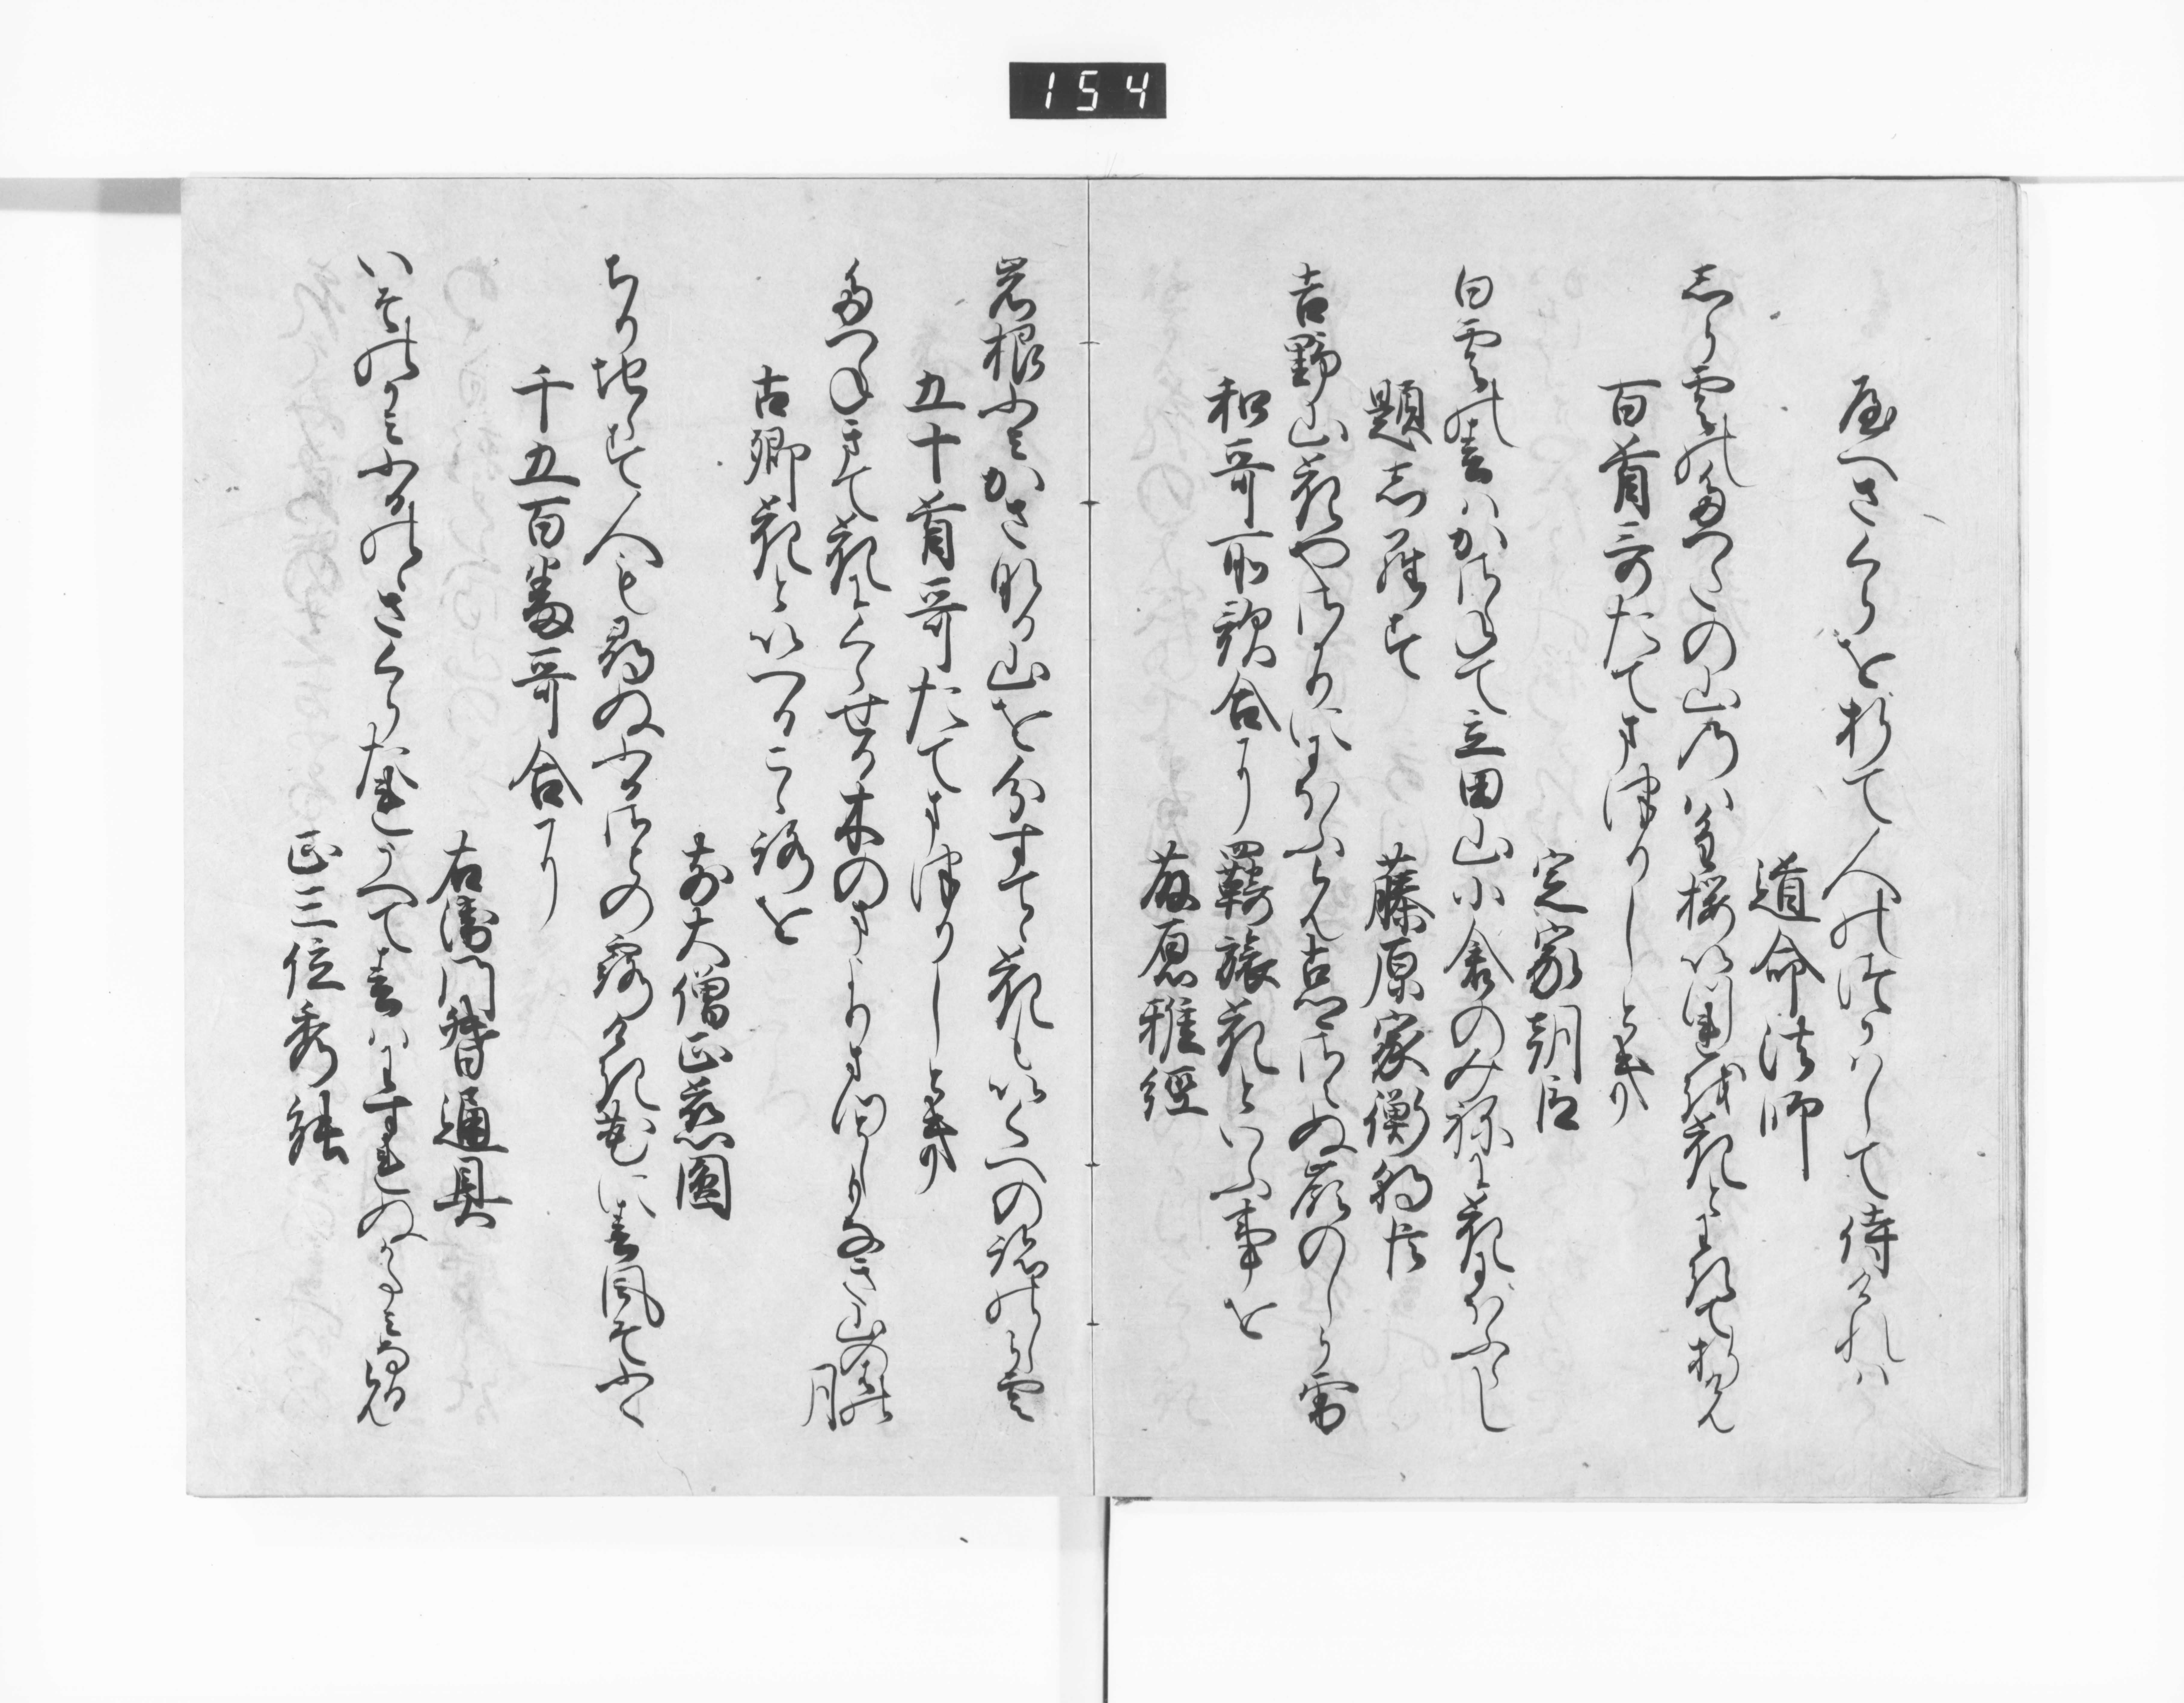 154
屋へさくらを折て人の徒かはして侍けれは
道命法師
志ら雲のたつたの山の八重桜いつれを花とわきて折けん
百首哥たてまつりしとき
定家朝臣
白雲の春はかさねて立田山小倉のみねに花にほふらし
題志らす
藤原家衡朝臣
吉野山花やさかりににほふらん古さとさえぬ嶺のしら雪
和哥所歌合に羇旅花といふ事を
藤原雅経
岩根ふみかさなる山を分すてゝ花もいくへの跡のしら雲
五十首哥たてまつりしとき
たつねきて花にくらせる木のまよりまつとしもなき山の端の月
古郷花といへるこゝろを
前大僧正慈圓
ちり地らす人も尋ぬふるさとの露けき花に春風そふく
千五百番哥合に
右衛門督通具
いそのかみふるのさくらたれうへて春はわすれぬかたみなるらん
正三位秀能